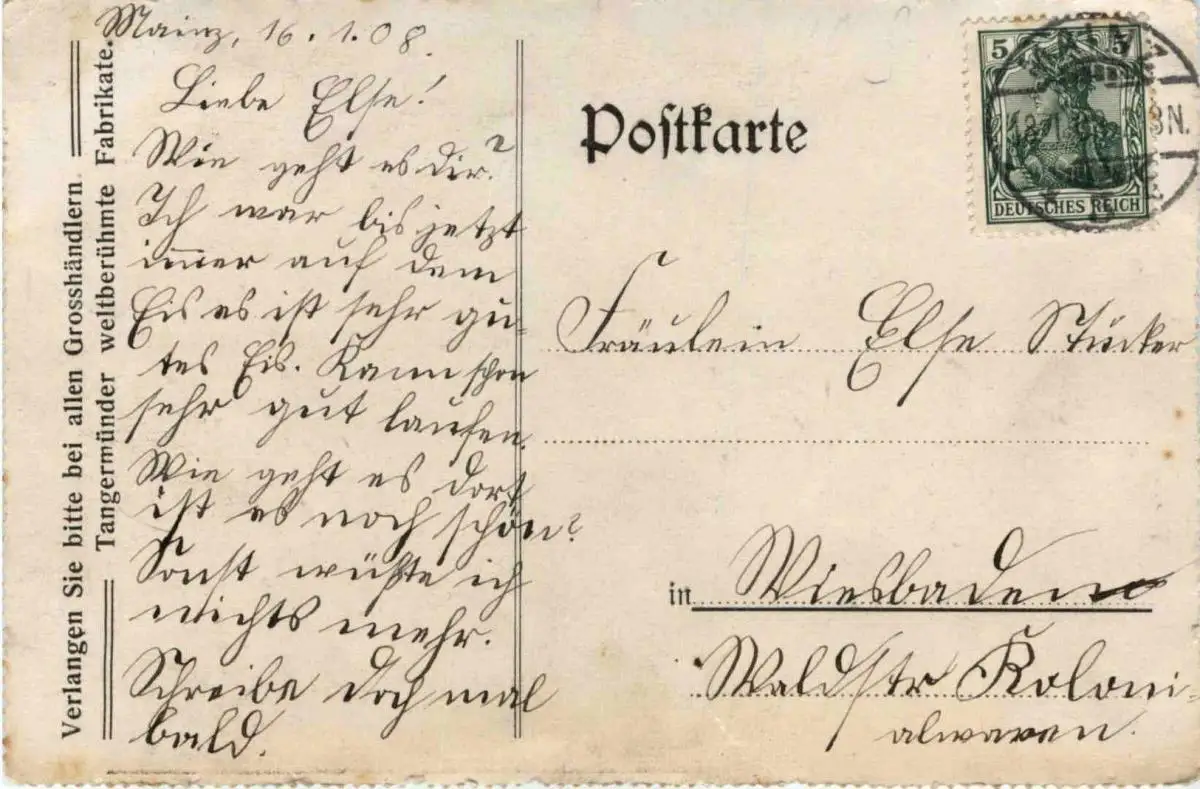 Verlangen Sie bitte bei allen Grosshändlern
Tangermünder weltberühmte Fabrikate.
Mainz, 16.1.08.
Liebe Else!
Wie geht es dir?
Ich war bis jetzt
immer auf dem
Eis es ist sehr gu-
tes Eis. Kann schon
sehr gut laufen.
Wie geht es dort
ist es noch schön?
Sonst wüßte ich
nichts mehr.
Schreibe doch mal
bald.
Postkarte
5 5
DEUTSCHES REICH
Fräulein Else Stücker
in Wiesbaden
Waldstr Koloni-
alwaren.